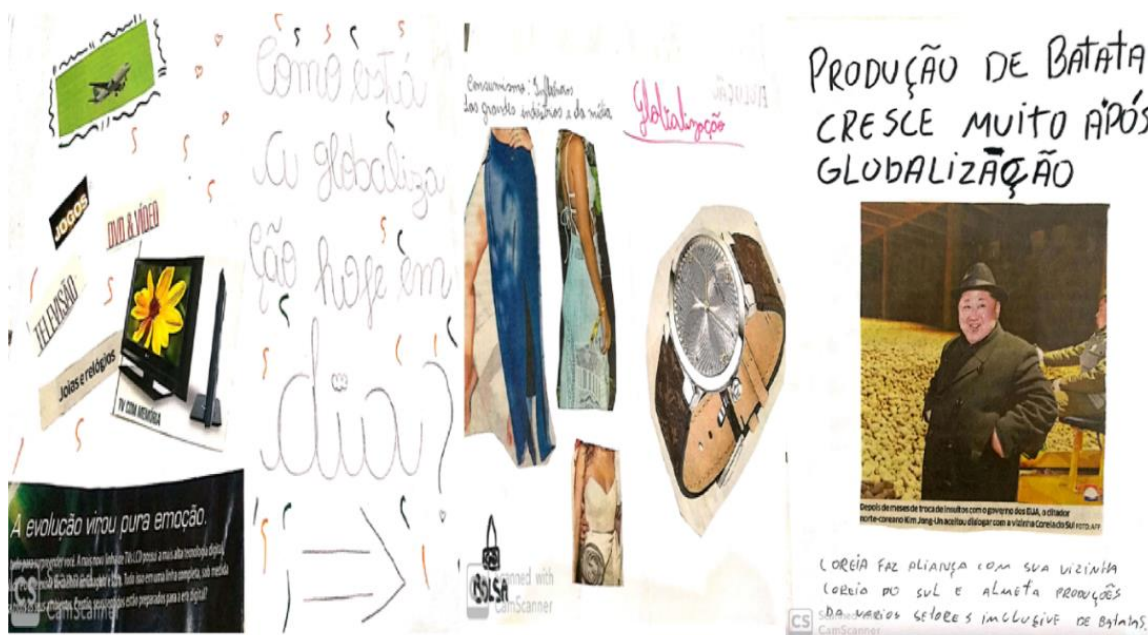 JOGOS
DVD & VÍDEO
TELEVISÃO
Joias e relógios
TV COM MEMÓRIA
A evolução virou pura emoção.
CS
CamScanner
Como está
a globaliza
ção hoje em
dia?
Consumismo: Influência
das grandes indústrias e da mídia
Globalização
BOLSA
Scanned with
CamScanner
PRODUÇÃO DE BATATA
CRESCE MUITO APÓS
GLOBALIZAÇÃO
Depois de meses de troca de insultos com o governo dos EUA, o ditador
norte-coreano Kim Jong-Un aceitou dialogar com a vizinha Coreia do Sul FOTO: AFP
COREIA FAZ ALIANÇA COM SUA VIZINHA
COREIA DO SUL E ALMETA PRODUÇÕES
DA VARIOS SETORES INCLUSIVE DE BATATAS
CS
CamScanner